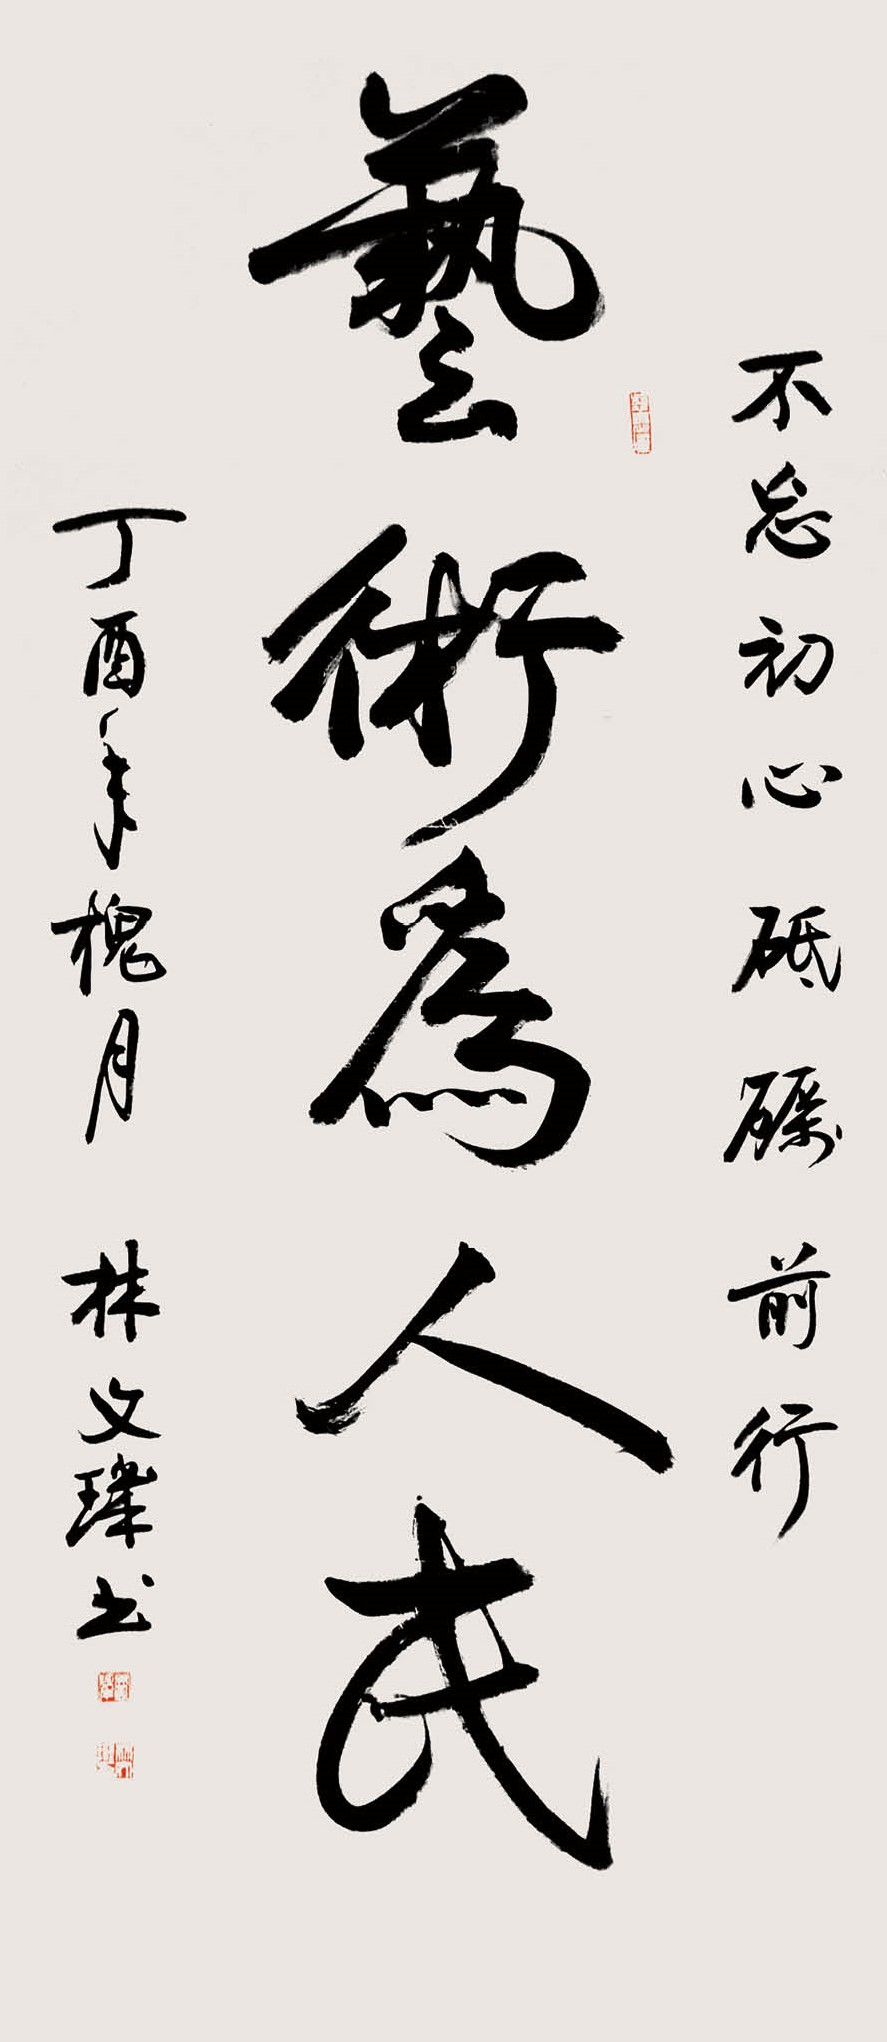 不忘初心砥砺前行
藝術為人民
丁酉年槐月
林文璞书